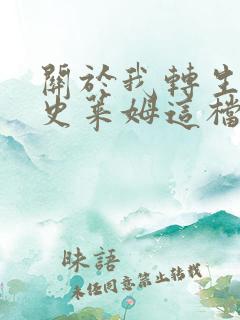 關於我轉生
史萊姆這檔
昧語
未經同意禁止轉載